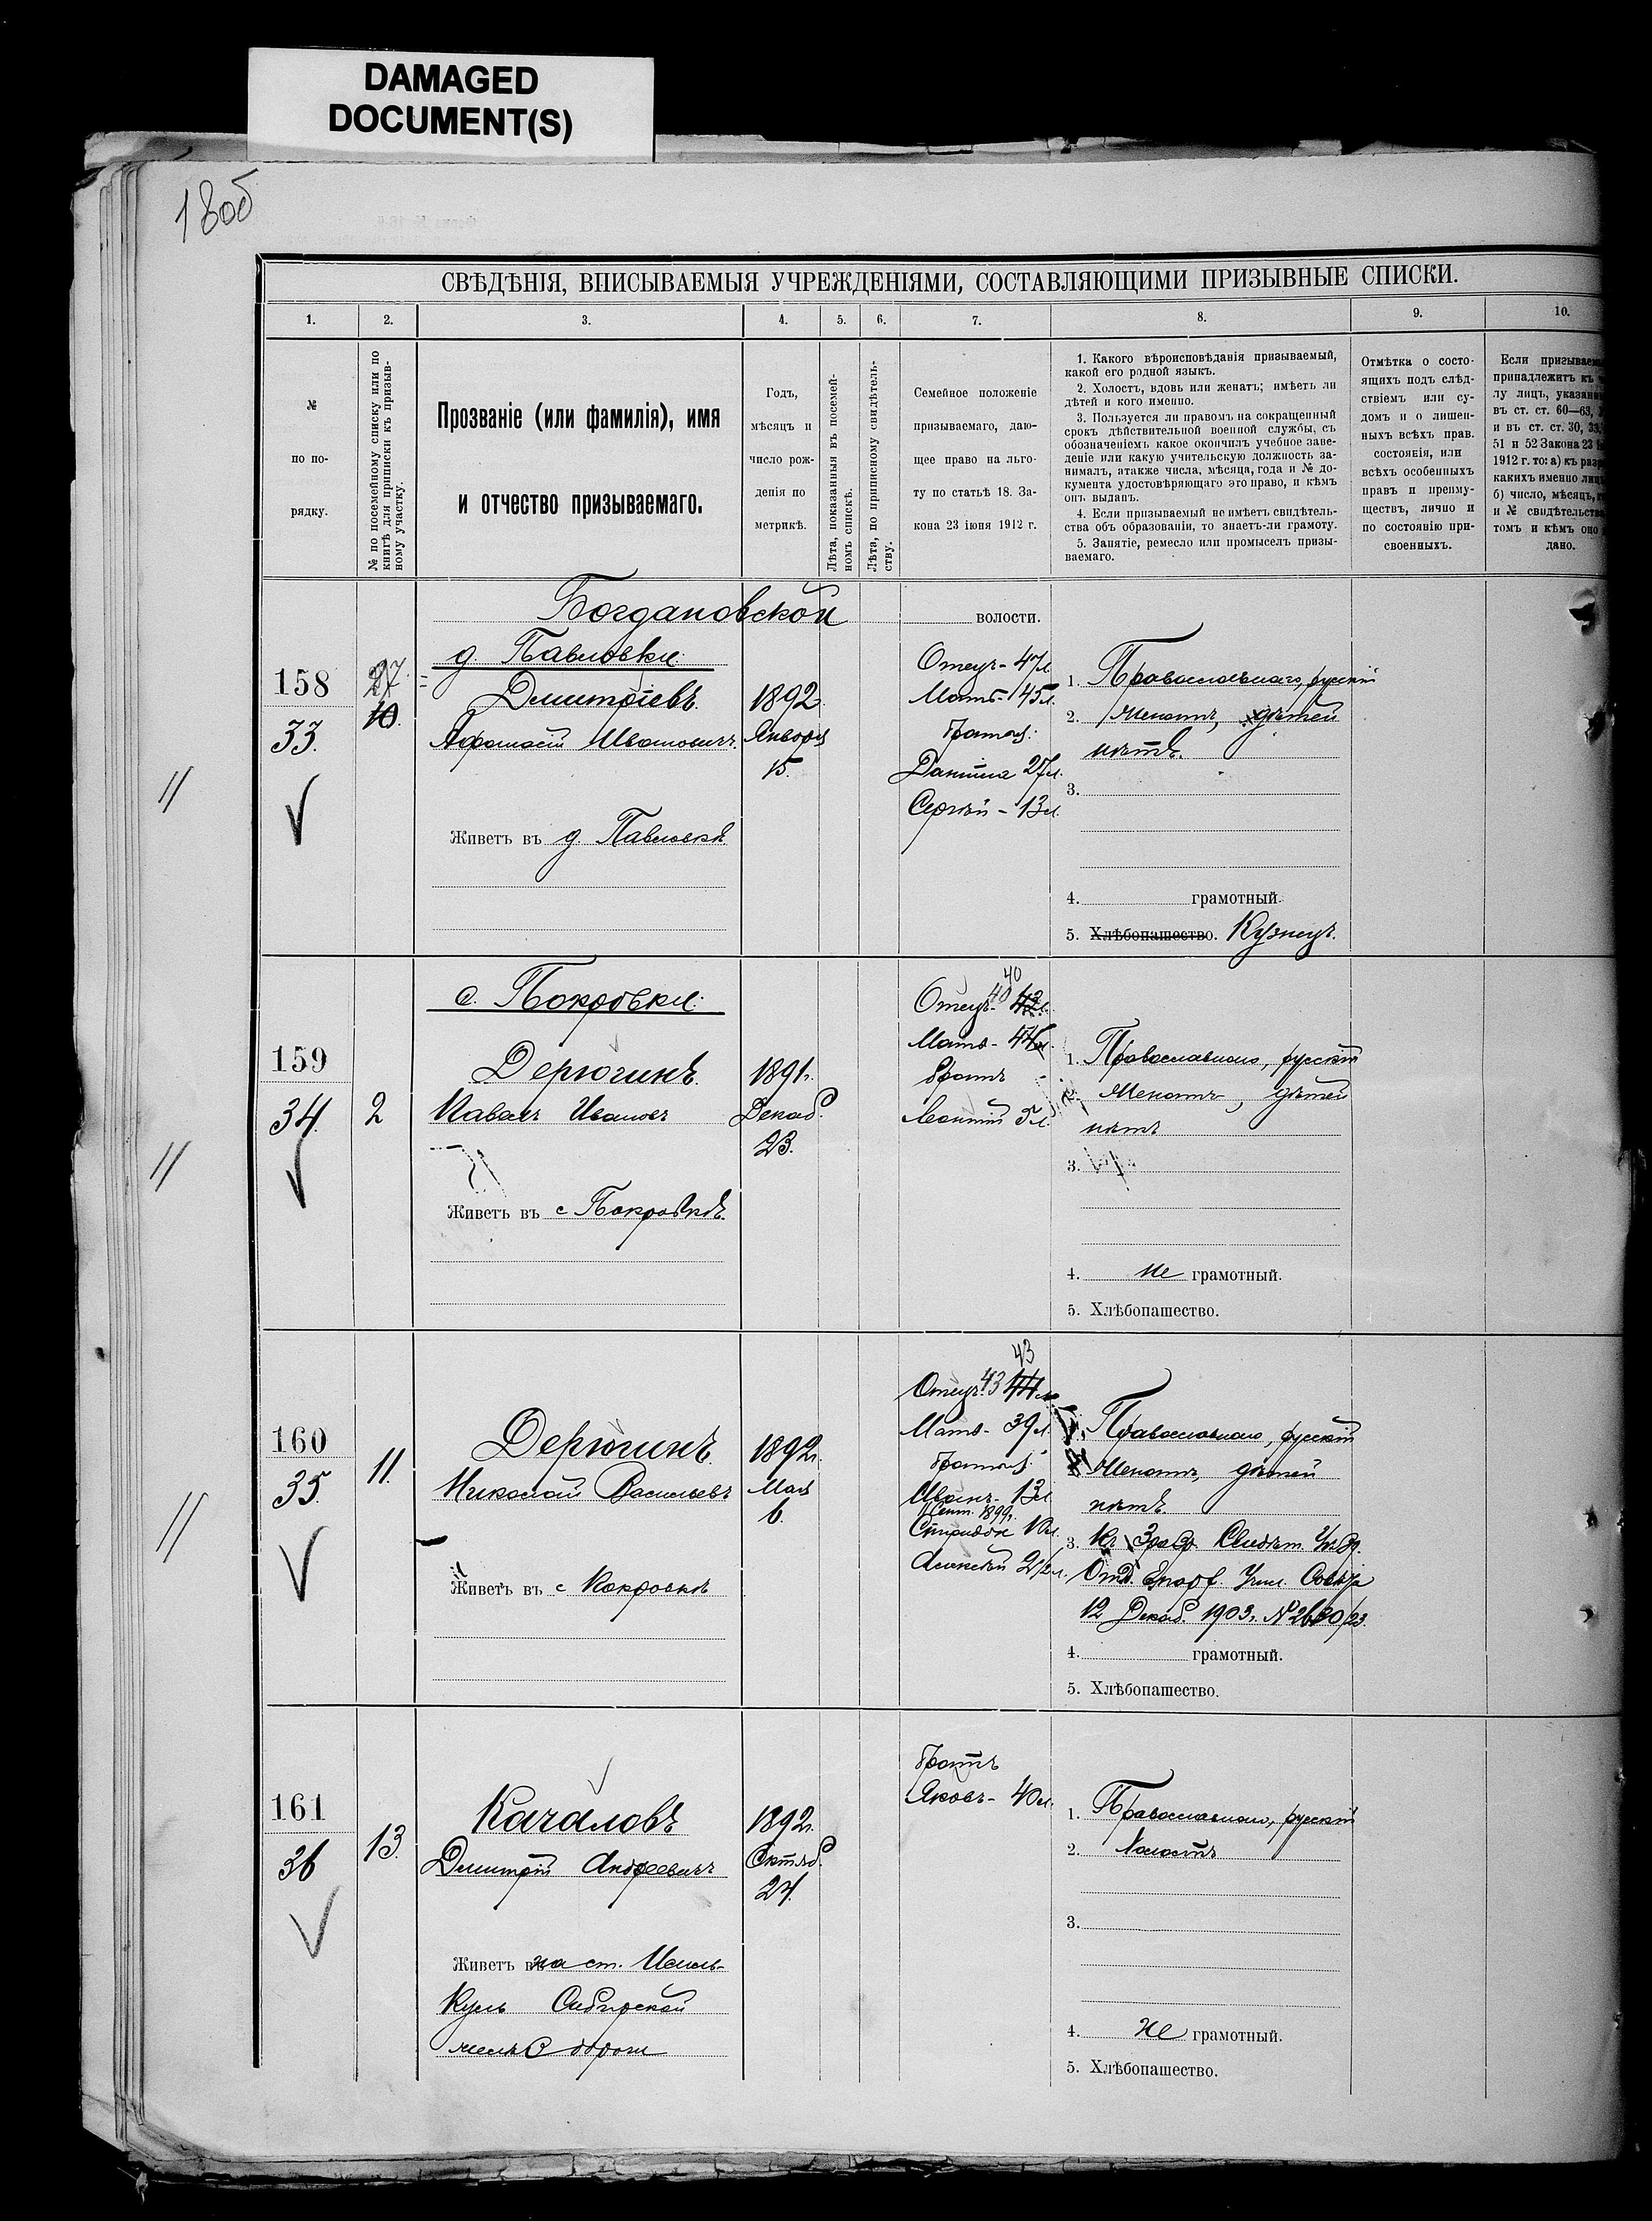 DAMAGED
DOCUMENT(S)
18об
СВѢДѢНІЯ, ВПИСЫВАЕМЫЯ УЧРЕЖДЕНІЯМИ, СОСТАВЛЯЮЩИМИ ПРИЗЫВНЫЕ СПИСКИ.
1. 2. 3. 4. 5. 6. 7. 8. 9. 10.
№
по по-
рядку.
№ по посемейному списку или по
книгѣ для приписки къ призыв-
ному участку.
Прозваніе (или фамилія), имя
и отчество призываемаго.
Годъ,
мѣсяцъ и
число рож-
денія по
метрикѣ.
Лѣта, показанныя въ посемей-
номъ спискѣ.
Лѣта, по приписному свидѣтель-
ству.
Семейное положеніе
призываемаго, даю-
щее право на льго-
ту по статьѣ 18. За-
кона 23 іюня 1912 г.
1. Какого вѣроисповѣданія призываемый,
какой его родной языкъ.
2. Холостъ, вдовъ или женатъ; имѣетъ ли
дѣтей и кого именно.
3. Пользуется ли правомъ на сокращенный
срокъ дѣйствительной военной службы, съ
обозначеніемъ какое окончилъ учебное заве-
деніе или какую учительскую должность за-
нималъ, атакже числа, мѣсяца, года и № до-
кумента удостовѣряющаго это право, и кѣмъ
онъ выданъ.
4. Если призываемый не имѣетъ свидѣтель-
ства объ образованіи, то знаетъ-ли грамоту.
5. Занятіе, ремесло или промыселъ призы-
ваемаго.
Отмѣтка о состо-
ящихъ подъ слѣд-
ствіемъ или су-
домъ и о лишен-
ныхъ всѣхъ прав.
состоянія, или
всѣхъ особенныхъ
правъ и преиму-
ществъ, лично и
по состоянію при-
своенныхъ.
Если призываем
принадлежитъ къ
лу лицъ, указан
въ ст. ст. 60—63,
и въ ст. ст. 30, 33,
51 и 52 Закона 23
1912 г. то: а) къ раз
какихъ именно лиц
б) число, мѣсяцъ,
и № свидѣтельства
томъ и кѣмъ оно
дано.
Богдановской волости.
д Павловки
158
33.
27
10.
Дмитріевъ
Афанасій Ивановичъ
Живетъ въ д. Павловкѣ
1892
Января
15.
Отецъ - 47л.
Мать - 45л.
братья:
Данила 27л.
Сергѣй - 13л.
1. Православнаго, русскій
2. Женатъ, дѣтей
нѣтъ.
3.
4. грамотный.
5. Хлѣбопашество. Кузнецъ.
с. Покровки
159
34.
2
Дерюгинъ
Павелъ Ивановъ
Живетъ въ с Покровкѣ
1891г.
Декаб.
23.
40
Отецъ - 40 42л.
Мать - 44
братъ
Леонтій 5л.
1. Православнаго, русскій
2. Женатъ, дѣтей
нѣтъ
3.
4. не грамотный.
5. Хлѣбопашество.
160
35.
11.
Дерюгинъ
Николай Васильевъ
Живетъ въ с Покровкѣ
1892г.
Мая
6.
43
Отецъ 43 44л.
Мать - 39л.
братья:
Иванъ - 13л
Сент. 1899г.
Спиридон
Алексѣй 2½л.
1. Православнаго, русскій
2. Женатъ, дѣтей
нѣтъ.
3.
12 Декаб. 1903г.
4. грамотный.
5. Хлѣбопашество.
161
36
13.
Качаловъ
Дмитрій Андреевичъ
Живетъ въ на ст. Исиль-
Куль Сибирской
дороги
1892г.
Октяб.
24.
братъ
Яковъ - 40л.
1. Православнаго, русскій
2. Холостъ
3.
4. не грамотный.
5. Хлѣбопашество.